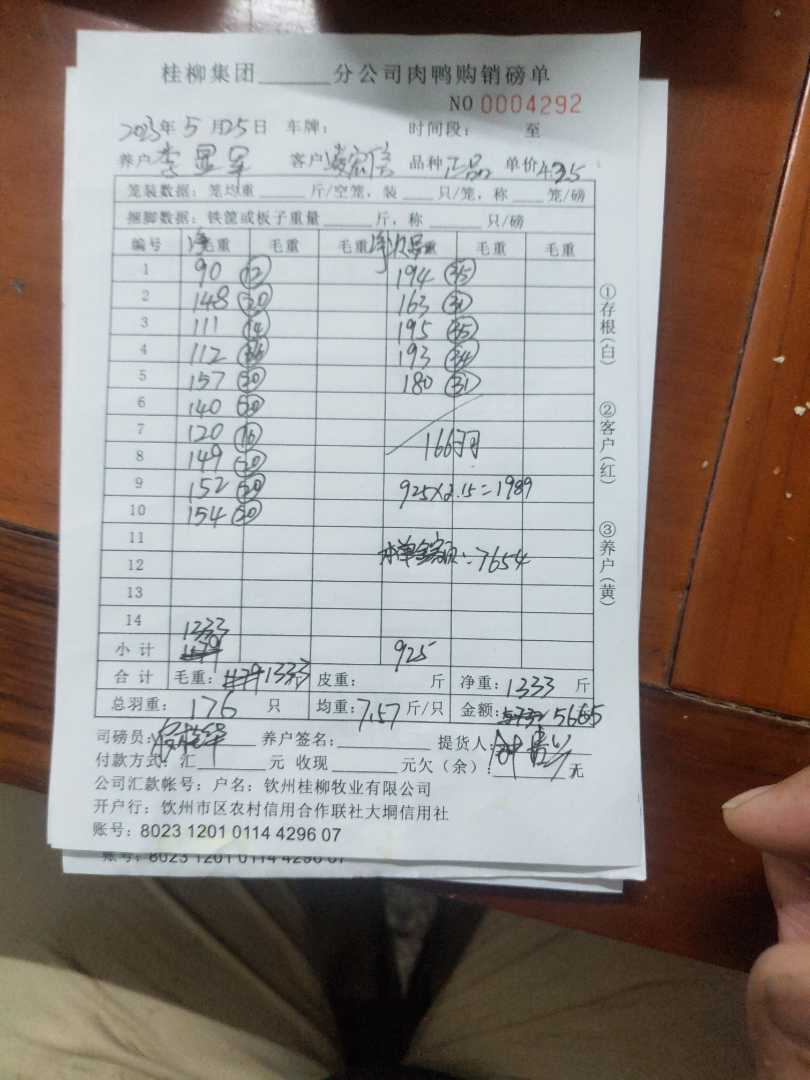 桂柳集团______分公司肉鸭购销磅单
NO 0004292
2023年 5 月 25 日 车牌: 时间段: 至
养户 李显军 客户 品种 正品 单价 4.25
笼装数据: 笼均重 ____ 斤/空笼, 装 ___ 只/笼, 称 ___ 笼/磅
捆脚数据: 铁筐或板子重量 ____ 斤, 称 ____ 只/磅
编号 净毛重 毛重 毛重 净次品毛重 毛重 毛重
1 90 12 194 35
2 148 20 163 31
3 111 14 195 35
4 112 193 34
5 157 20 180 31
6 140 20
7 120 16 166只
8 149 20
9 152 20 925×2.15=1989
10 154 20
11
12 本单金额:=7654
13
14 1333
小计 925
合计 毛重: 1333 斤 皮重: 斤 净重: 1333 斤
总羽重: 176 只 均重: 7.57 斤/只 金额: 5665
司磅员: 养户签名: 提货人:
付款方式: 汇 ______ 元 收现 ______ 元欠(余): ______ 无
公司汇款帐号: 户名: 钦州桂柳牧业有限公司
开户行: 钦州市区农村信用合作联社大垌信用社
账号: 8023 1201 0114 4296 07
账号: 8023 1201 0114 4296 07
①存根(白)
②客户(红)
③养户(黄)